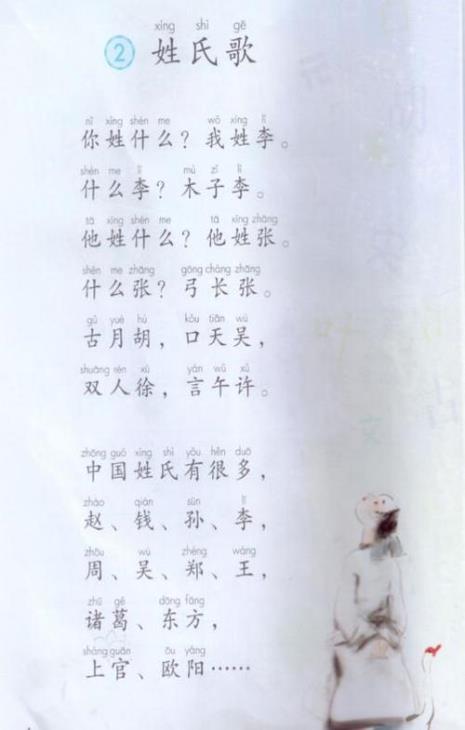 xìng shì gē
2 姓氏歌
nǐ xìng shén me wǒ xìng lǐ
你姓什么？我姓李。
shén me lǐ mù zǐ lǐ
什么李？木子李。
tā xìng shén me tā xìng zhāng
他姓什么？他姓张。
shén me zhāng gōng cháng zhāng
什么张？弓长张。
gǔ yuè hú kǒu tiān wú
古月胡，口天吴，
shuāng rén xú yán wǔ xǔ
双人徐，言午许。
zhōng guó xìng shì yǒu hěn duō
中国姓氏有很多，
zhào qián sūn lǐ
赵、钱、孙、李，
zhōu wú zhèng wáng
周、吴、郑、王，
zhū gě dōng fāng
诸葛、东方，
shàng guān ōu yáng
上官、欧阳……